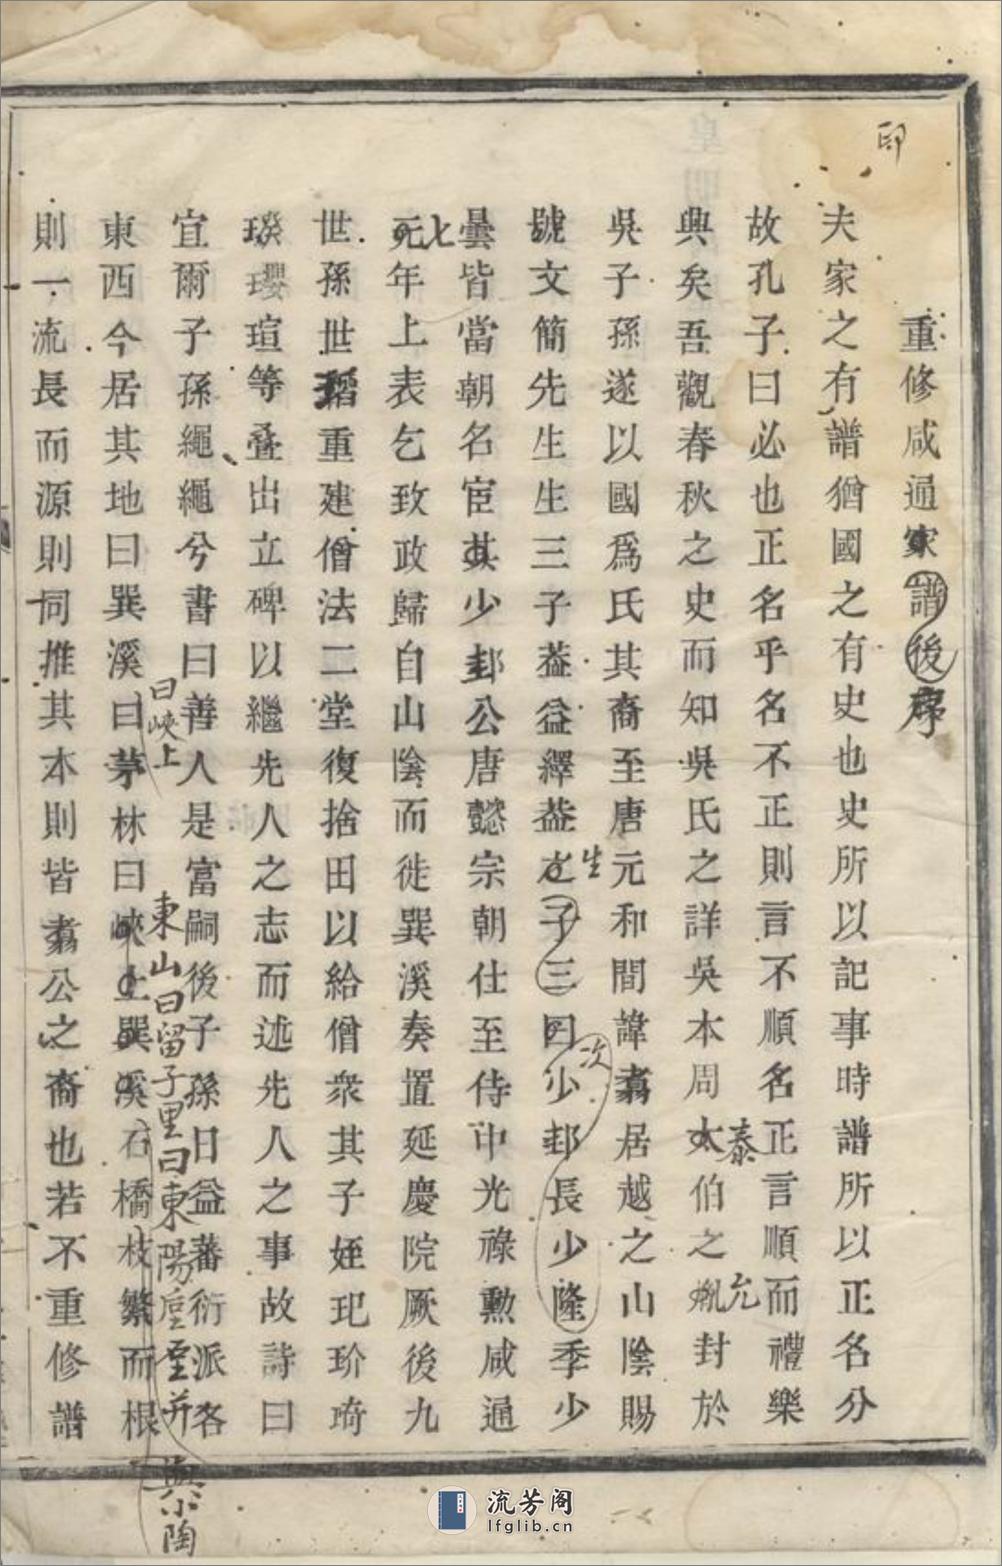 印
重修咸通家譜後序
夫家之有譜猶國之有史也史所以記事時譜所以正名分
故孔子曰必也正名乎名不正則言不順名正言順而禮樂
興矣吾觀春秋之史而知吳氏之詳吳本周太伯之胤封於
泰
允
吳子孫遂以國爲氏其裔至唐元和間諱翥居越之山陰賜
號文簡先生生三子益益繹益之子三曰少邽長少隆季少
生
次
曇皆當朝名宦其少邽公唐懿宗朝仕至侍中光祿勳咸通
元年上表乞致政歸自山陰而徙巽溪奏置延慶院厥後九
七
世孫世稻重建僧法二堂復捨田以給僧衆其子姪玘玠琦
璞瓔瑄等叠出立碑以繼先人之志而述先人之事故詩曰
宜爾子孫繩繩兮書曰善人是富嗣後子孫日益蕃衍派各
東西今居其地曰巽溪曰茅林曰峽上巽溪石橋枝繁而根
曰峽上
東山曰留子里曰東陽
與小陶
則一流長而源則同推其本則皆翥公之裔也若不重修譜
流芳阁
lfglib.cn